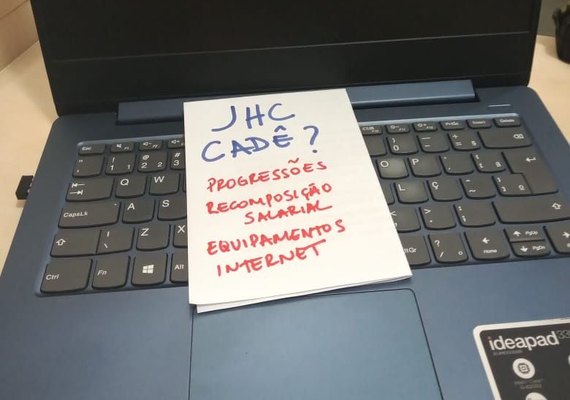 JHC
CADÊ?
PROGRESSÕES
RECOMPOSIÇÃO
SALARIAL
EQUIPAMENTOS
INTERNET
Esc
Q W
CapsLk A S
Z X
Ctrl Fn Alt
AltGr
PgUp
Home PgDn End
Ç
ideapad 330